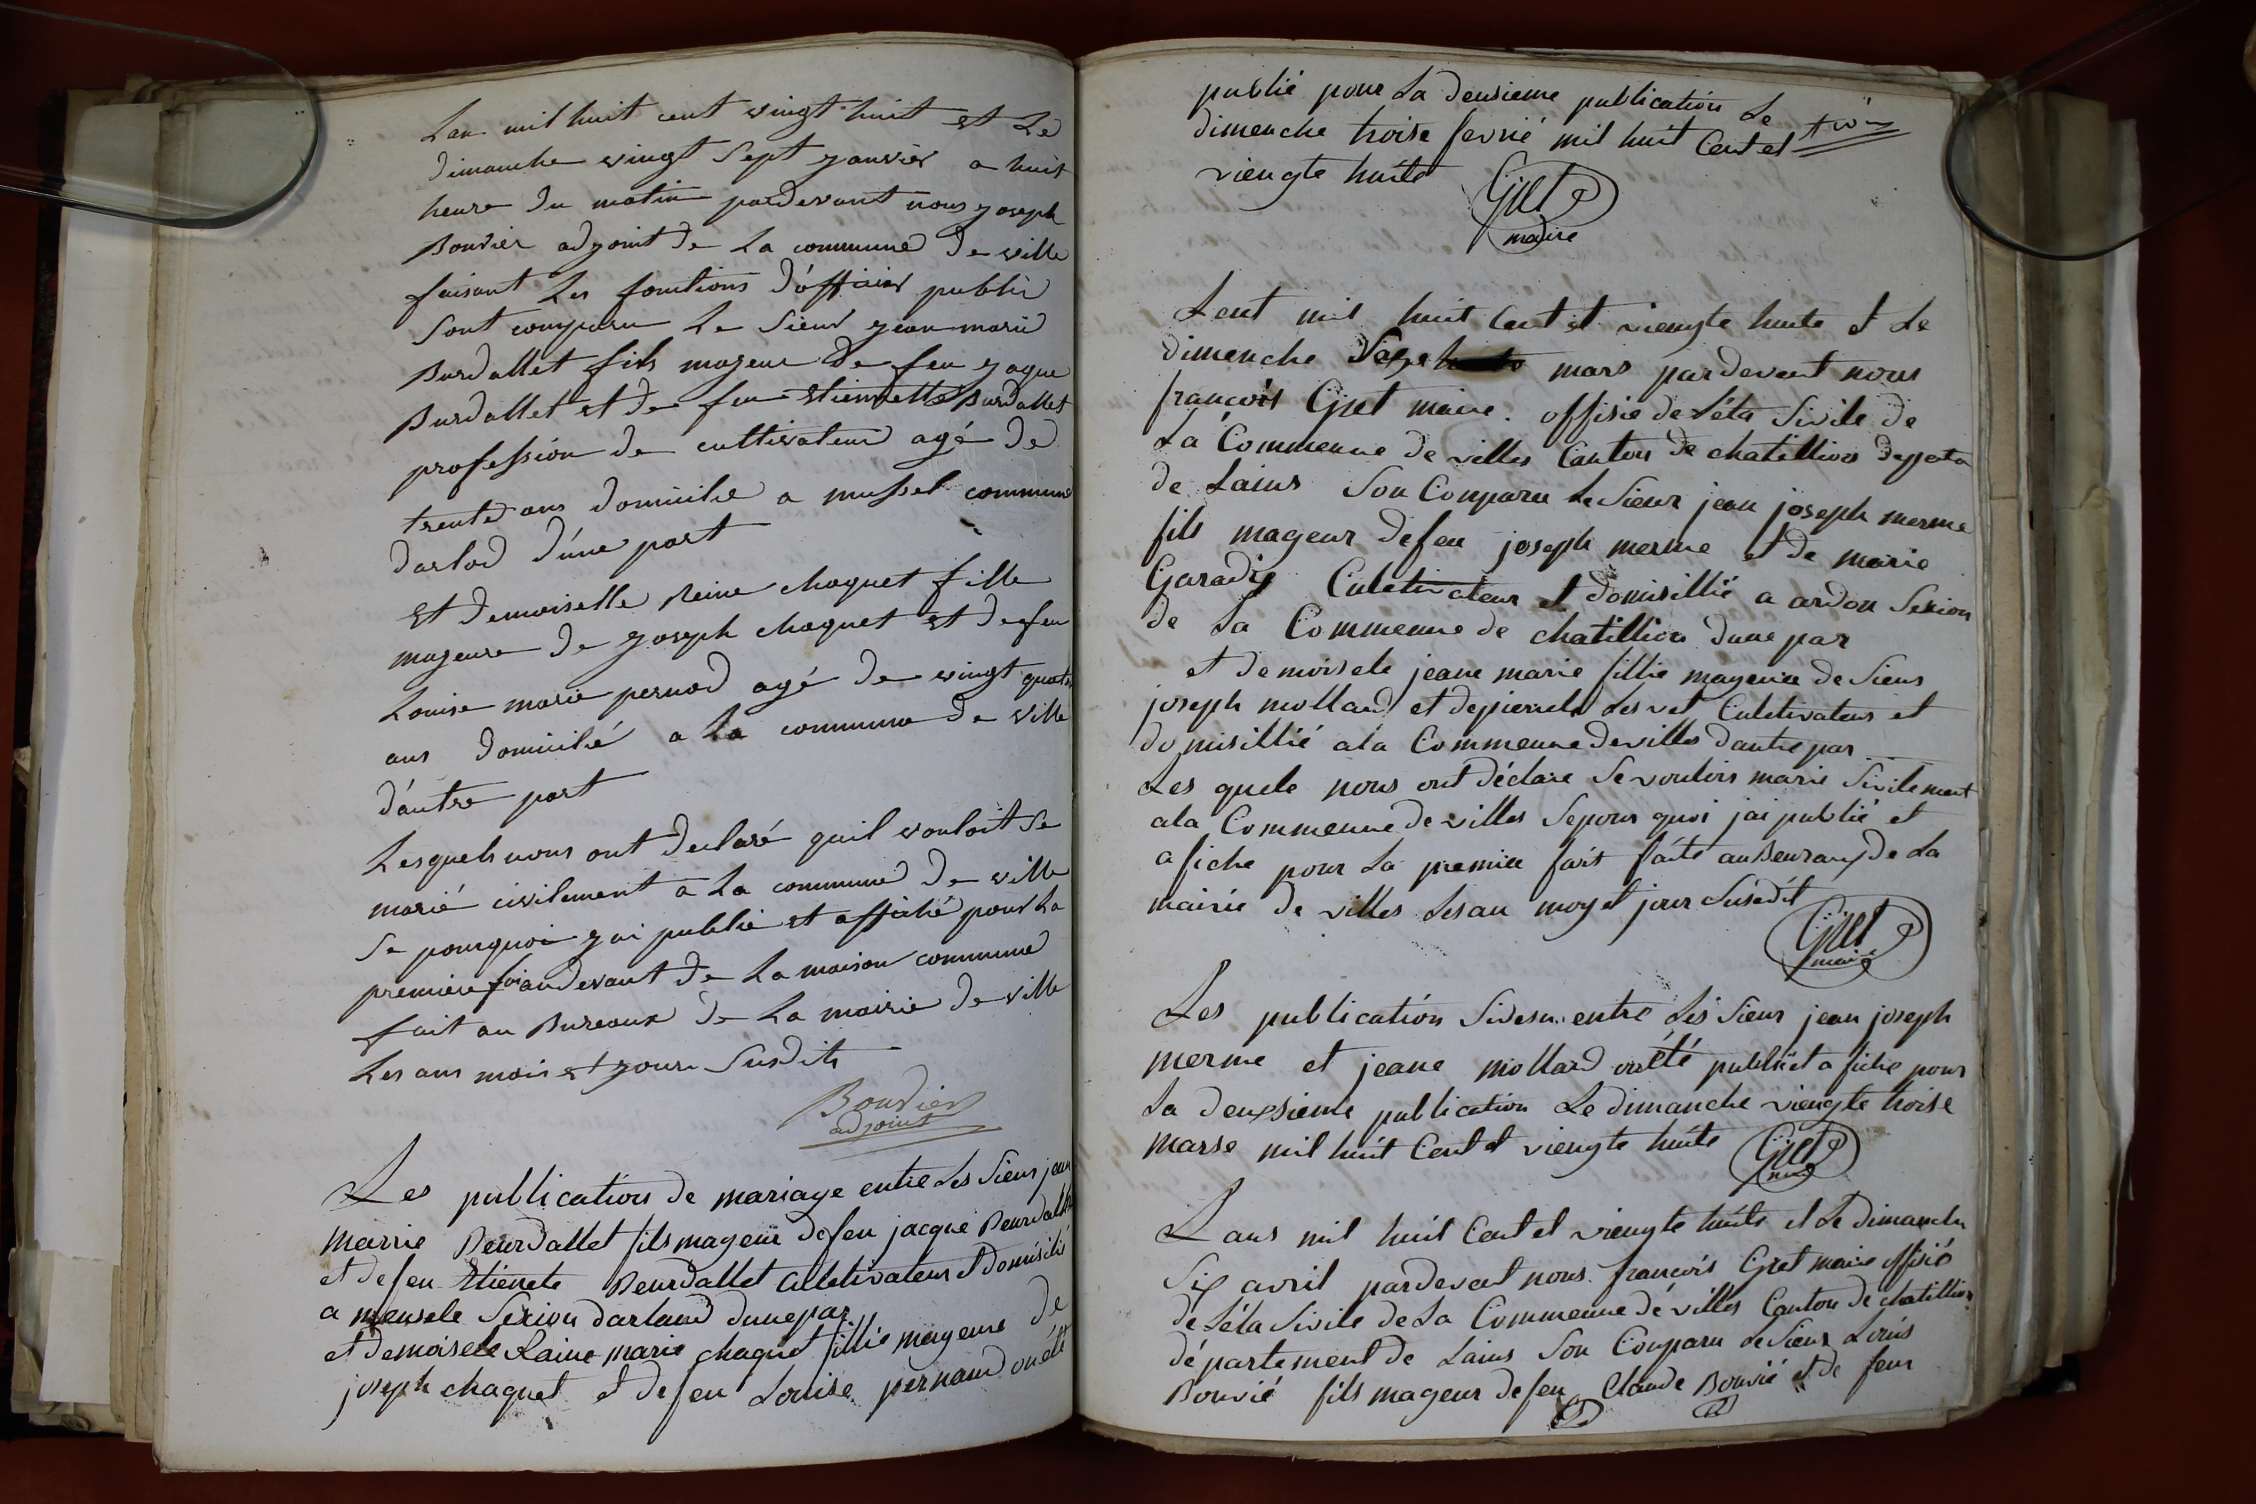 Lan mil huit cent vingt huit et Le
dimanche vingt Sept yanvier a huit
heure du matin pardevant nous yoseph
Bouvier adyoint de La commune de ville
faisant Les fonctions d'officier public
Sont comparu Le Sieur yean marie
Burdallet fils mayeur de feu yaque
Burdallet et de feu Etiennette Burdallet
profession de cultivateur agé de
trente ans domicilie a mussel commune
darlod d'une part
et demoiselle Reine chaquet fille
mayeure de yoseph chaquet et de feu
Louise marie pernod agé de vingt quatre
ans domicilié a La commune de ville
d'autre part
Lesquels nous ont declaré quil vouloit Se
marié civilement a La commune de ville
Se pourquoi yai publié et affiché pour La
premiere foi audevant de La maison commune
fait au Bureaux de La mairie de ville
Les ans mois et your Susdits
Bouvier
adjoint
Les publication de mariage entre Les Sieur jean
marie Beurdallet fils mageur defeu jacque Beurdallet
et defeu Etienete Beurdallet Culetivateur et domisilié
a meusele Sexion darlaud dunepar
et demoisele Raine marie chaquet fillie mageure de
joseph chaquet et defeu Louise pernaud onété
publié pour La deusieme publication Le
dimenche troise fevrié mil huit Cent et
viengte huite
Gret
maire
Lent mil huit Cent et viengte huite et Le
dimenche Saize mars pardevent nous
francois Gret maire offisie de Léta Sivile de
La Commeune de villes Canton de chatillion departa
de Lains Son Conparu Le Sieur jean joseph merme
fils mageur defeu joseph merme et de marie
Garadis Culetivateur et domisillié a ardon Sexion
de La Commeune de chatillion dune par
et demoisele jeane marie fillie mageure de Sieur
joseph mollard et depierrete Lesvet Culetivateur et
domisillié ala Commeune devilles dautre par
Les quele nous ont déclare Se vouloir marie Sivilement
ala Commeune de villes Sepour quoi jai publié et
afiche pour La premiee fois faite au Beuraux de La
mairie de villes Lesan moy et jour Susédit
Gret
maire
Les publication Sidesu entre Les Sieur jean joseph
merme et jeane mollard onété publié et afiche pour
La deuxsieme publication Le dimanche viengte troise
marse mil huit Cent et viengte huite
Gret
maire
Lans mil huit Cent et viengte huite et Le dimanche
Six avril pardevent nous francois Gret maire offisié
de Léta Sivile de La Commeune de villes Canton de chatillion
département de Lains Son Conparu Le Sieur Louis
Bouvié fils mageur defeu Claude Bouvié et de feur